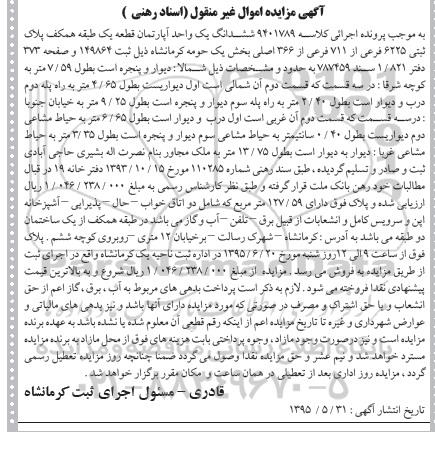 آگهی مزایده اموال غیر منقول (اسناد رهنی )
به موجب پرونده اجرائی کلاسه ۹۴۰۱۷۸۹ ششدانگ یک واحد آپارتمان قطعه یک طبقه همکف پلاک
ثبتی ۶۲۲۵ فرعی از ۷۱۱ فرعی از ۳۶۶ اصلی بخش یک حومه کرمانشاه ذیل ثبت ۱۴۹۸۶۴ و صفحه ۳۷۳
دفتر ۸۲۱ / ۱ سند ۷۸۷۴۵۹ به حدود و مشخصات ذیل شمالا : دیوار و پنجره است بطول ۵۹ / ۷ متر به
کوچه شرقا : در سه قسمت که قسمت دوم آن شمالی است اول دیواریست بطول ۶۵ / ۴ متر به راه پله دوم
درب و دیوار است بطول ۴۰ / ۲ متر به راه پله سوم دیوار و پنجره است بطول ۲۵ / ۹ متر به خیابان جنوبا
: در سه قسمت که قسمت دوم آن غربی است اول درب و دیوار است بطول ۶۵ / ۶ متر به حیاط مشاعی
دوم دیواریست بطول ۴۰ / ۰ سانتیمتر به حیاط مشاعی سوم دیوار و پنجره است بطول ۳۵ / ۳ متر به حیاط
مشاعی غربا : دیوار به دیوار است بطول ۷۵ / ۱۳ متر به ملک مجاور بنام نصرت اله بشیری حاجی آبادی
ثبت و صادر و تسلیم گردیده ، طبق سند رهنی شماره ۱۱۰۲۸۵ مورخ ۱۵ / ۱۰ / ۱۳۹۳ دفتر خانه ۱۹ در قبال
مطالبات خود رهن بانک ملت قرار گرفته و طبق نظر کارشناس رسمی به مبلغ ۰۰۰ / ۲۳۸ / ۰۴۶ / ۱ ریال
ارزیابی شده و پلاک فوق دارای ۵۹ / ۱۲۷ متر مربع که شامل دو اتاق خواب – حال – پذیرایی – آشپزخانه
اپن و سرویس کامل و انشعابات از قبیل برق – تلفن – آب و گاز می باشد در طبقه همکف از یک ساختمان
دو طبقه می باشد به آدرس : کرمانشاه – شهرک رسالت – برخیابان ۱۲ متری – روبروی کوچه ششم . پلاک
فوق از ساعت ۹ الی ۱۲ روز شنبه مورخ ۲۰ / ۶ / ۱۳۹۵ در اداره ثبت ناحیه یک کرمانشاه واقع در اجرای ثبت
از طریق مزایده به فروش می رسد . مزایده از مبلغ ۰۰۰ / ۲۳۸ / ۰۴۶ / ۱ ریال شروع و به بالاترین قیمت
پیشنهادی نقدا فروخته می شود . لازم به ذکر است پرداخت بدهی های مربوط به آب ، برق ، گاز اعم از حق
انشعاب و یا حق اشتراک و مصرف در صورتی که مورد مزایده دارای آنها باشد و نیز بدهی های مالیاتی و
عوارض شهرداری و غیره تا تاریخ مزایده اعم از اینکه رقم قطعی آن معلوم شده یا نشده باشد به عهده برنده
مزایده است و نیز درصورت وجود مازاد ، وجوه پرداختی بابت هزینه های فوق از محل مازاد به برنده مزایده
مسترد خواهد شد و نیم عشر و حق مزایده نقدا وصول می گردد ضمنا چنانچه روز مزایده تعطیل رسمی
گردد ، مزایده روز اداری بعد از تعطیلی در همان ساعت و مکان مقرر برگزار خواهد شد .
قادری – مسئول اجرای ثبت کرمانشاه
تاریخ انتشار آگهی : ۳۱ / ۵ / ۱۳۹۵
۰۲۱-۸۸۳۴۹۶۷۰-۵